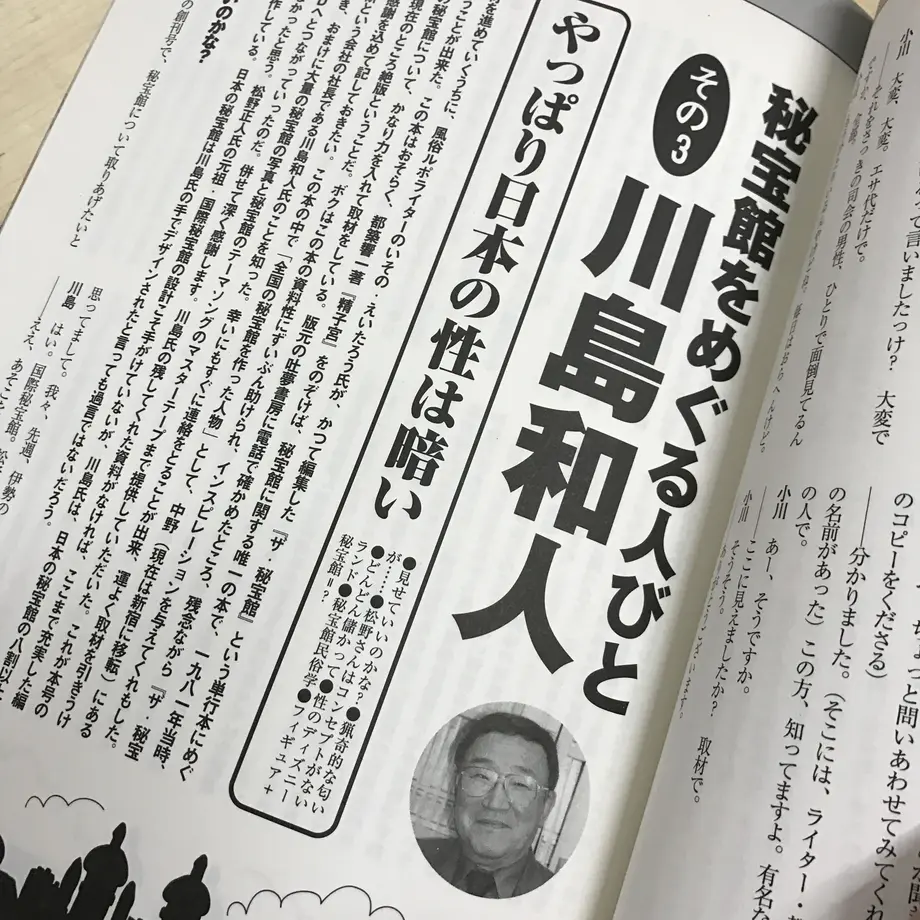 小川　大変、大変。エサ代だけで。
て言いましたっけ？　大変で
のコピーをくださる）
――分かりました。（そこには、ライター・
の名前があった）この方、知ってますよ。有名な
の人で。
小川　あー、そうですか。
――ここに見えましたか？　取材で。
小川　そうそう。
秘宝館をめぐる人びと
その3
川島和人
やっぱり日本の性は暗い
●見せていいのかな？●猟奇的な匂い
が……●松野さんはコンセプトがない
●どんどん儲かって●性のディズニー
ランド●秘宝館民俗学●フィギュア＋
秘宝館＝？
を進めていくうちに、風俗ルポライターのいその・えいたろう氏が、かつて編集した『ザ・秘宝館』という単行本にめぐ
うことが出来た。この本はおそらく、都築響一著『精子宮』をのぞけば、秘宝館に関する唯一の本で、一九八一年当時、
現在のところ絶版ということだ。ボクはこの本の資料性にずいぶん助けられ、インスピレーションを与えてくれもした。
感謝を込めて記しておきたい。この本の中で「全国の秘宝館を作った人物」として、中野（現在は新宿に移転）にある
という会社の社長である川島和人氏のことを知った。幸いにもすぐに連絡をとることが出来、運よく取材を引きうけ
き、おまけに大量の秘宝館の写真と秘宝館のテーマソングのマスターテープまで提供していただいた。これが本号の
へとつながっていったのだ。併せて深く感謝します。川島氏の残してくれた資料がなければ、ここまで充実した編
かったと思う。松野正人氏の元祖・国際秘宝館の設計こそ手がけていないが、川島氏は、日本の秘宝館の八割以上
作している。日本の秘宝館は川島氏の手でデザインされたと言っても過言ではないだろう。
いのかな？
の創刊号で、秘宝館について取りあげたいと
思ってまして。
川島　はい。我々、先週、伊勢の
――ええ、国際秘宝館。